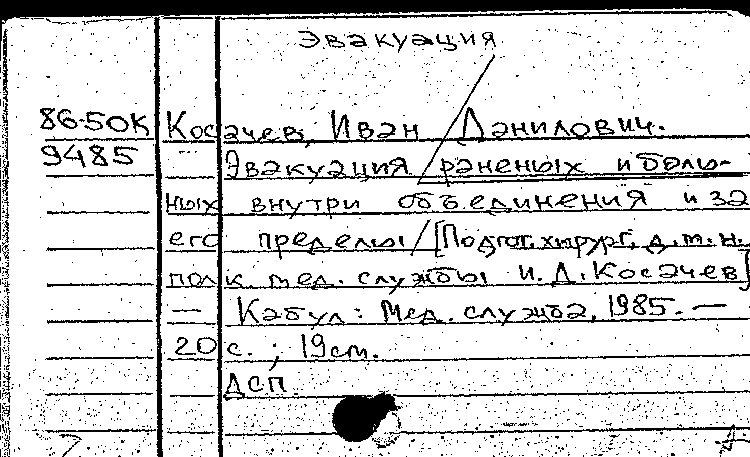 Эвакуация
86-50К Косачев, Иван Данилович.
9485 Эвакуация раненых и боль-
ных внутри объединения и за
его пределы/[Подгот. хирург, д.м.н.
полк. мед. службы И.Д.Косачев]
— Кабул: Мед. служба, 1985. —
20 с.; 19см.
ДСП